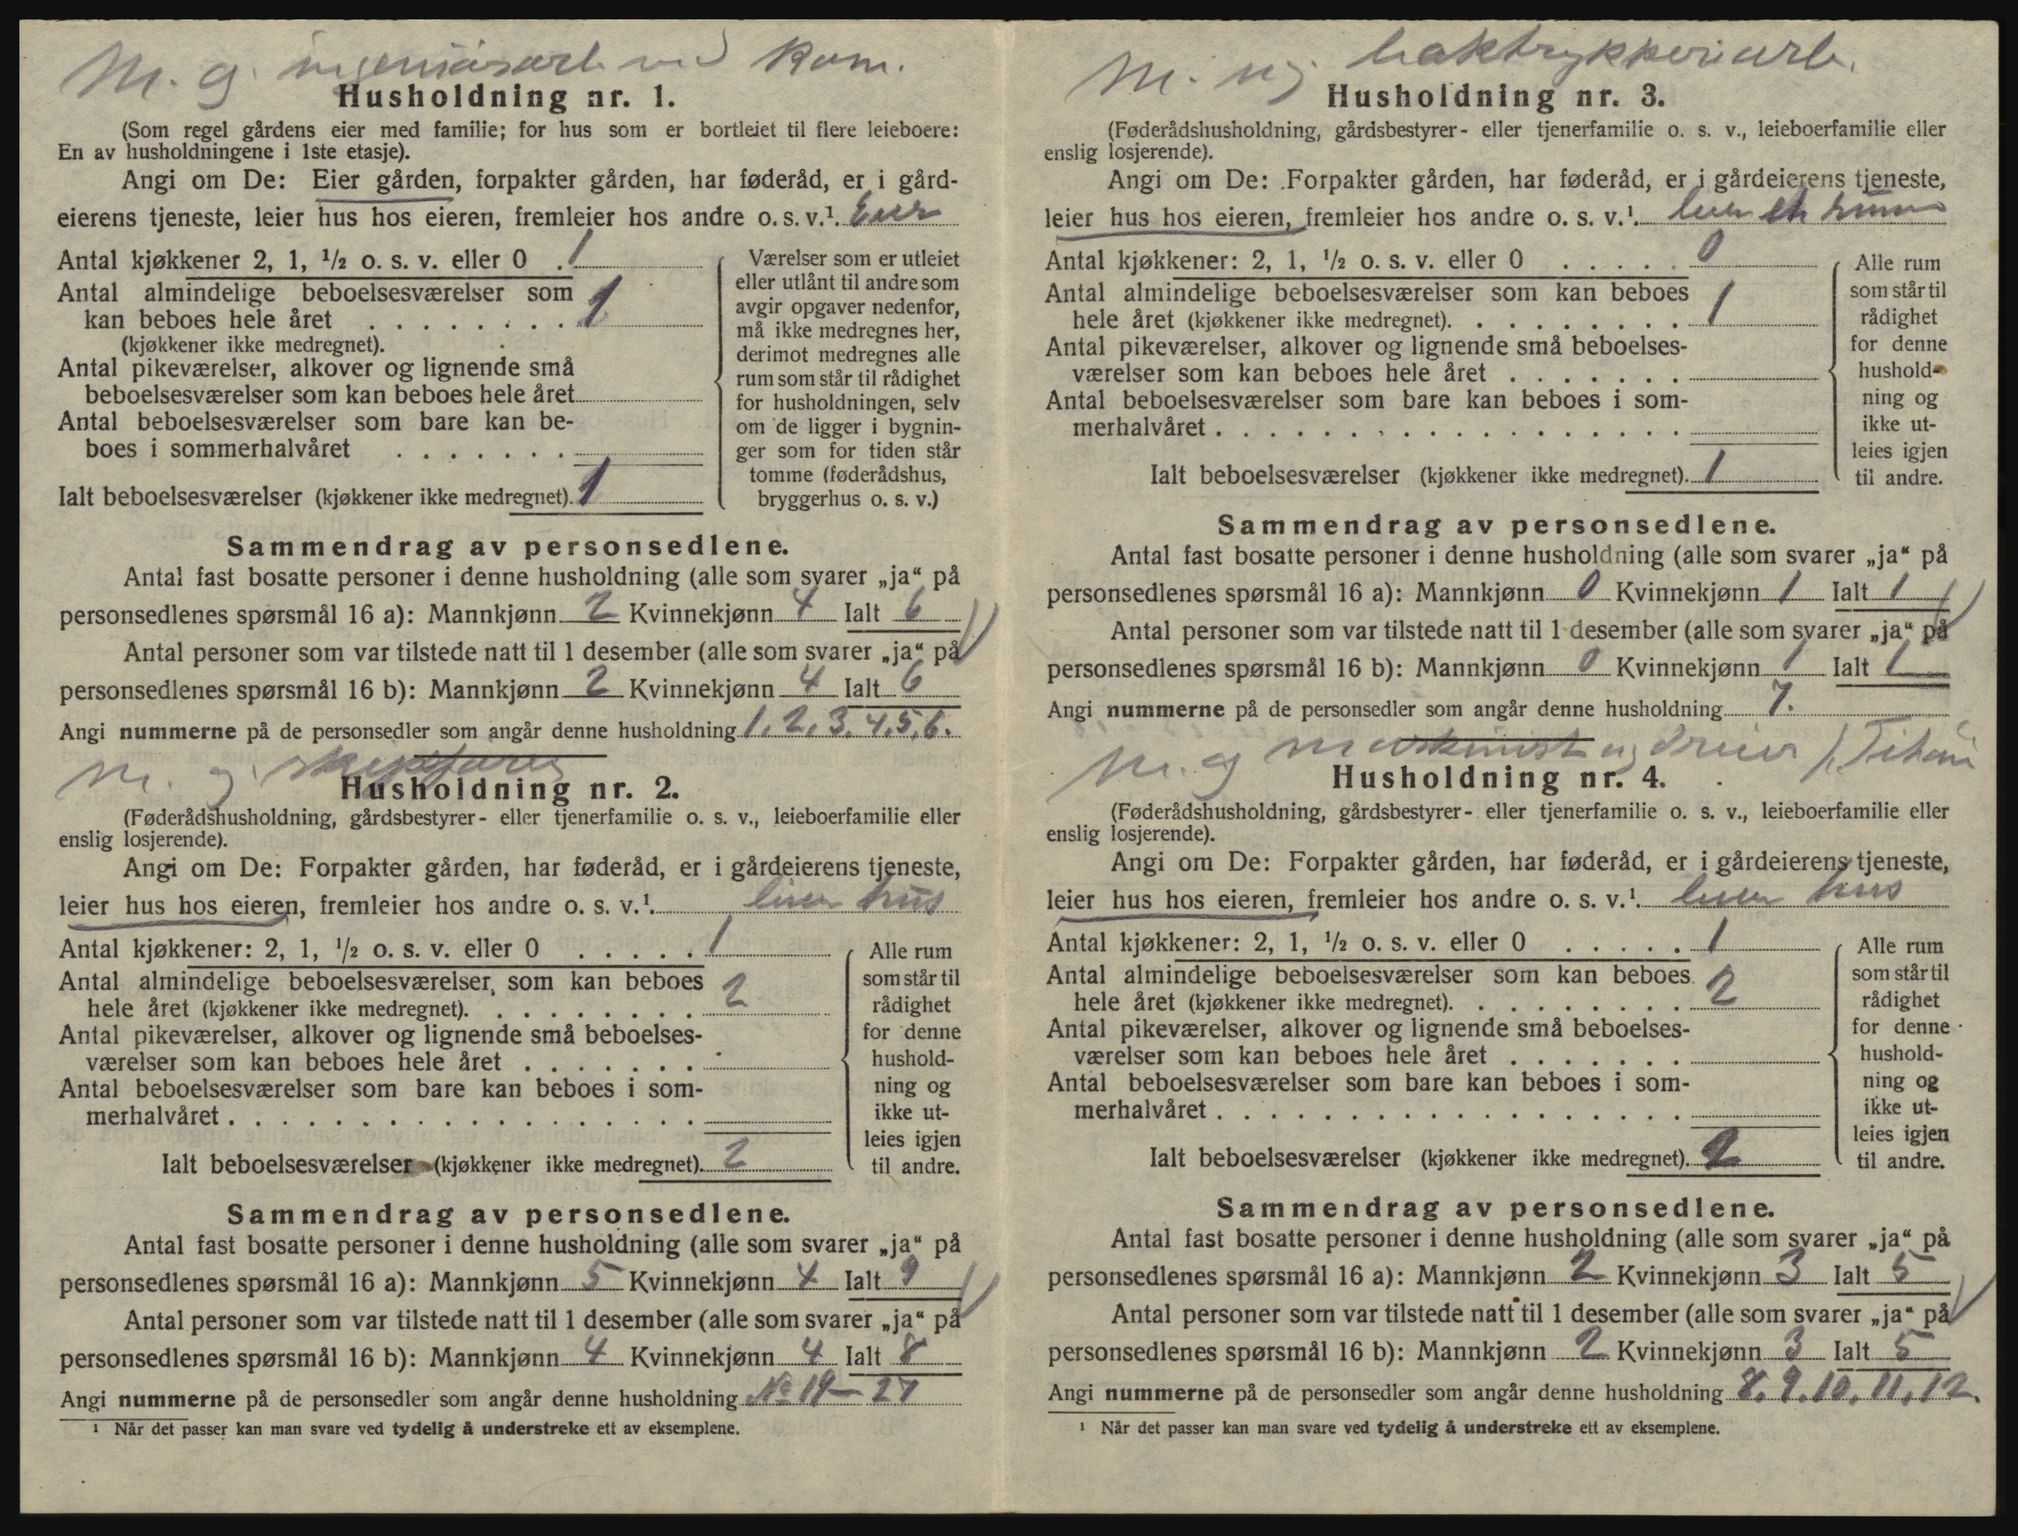 M. g. ingeniørarb. ved kom.
Husholdning nr. 1.
(Som regel gårdens eier med familie; for hus som er bortleiet til flere leieboere:
En av husholdningene i 1ste etasje).
Angi om De: Eier gården, forpakter gården, har føderåd, er i gård-
eierens tjeneste, leier hus hos eieren, fremleier hos andre o. s. v.¹. Eier
Antal kjøkkener 2, 1, ½ o. s. v. eller 0 . 1
Antal almindelige beboelsesværelser som
kan beboes hele året . . . . . . . . 1
(kjøkkener ikke medregnet).
Antal pikeværelser, alkover og lignende små
beboelsesværelser som kan beboes hele året
Antal beboelsesværelser som bare kan be-
boes i sommerhalvåret . . . . . . .
Ialt beboelsesværelser (kjøkkener ikke medregnet). 1
Værelser som er utleiet
eller utlånt til andre som
avgir opgaver nedenfor,
må ikke medregnes her,
derimot medregnes alle
rum som står til rådighet
for husholdningen, selv
om de ligger i bygnin-
ger som for tiden står
tomme (føderådshus,
bryggerhus o. s. v.)
Sammendrag av personsedlene.
Antal fast bosatte personer i denne husholdning (alle som svarer „ja“ på
personsedlenes spørsmål 16 a): Mannkjønn 2 Kvinnekjønn 4 Ialt 6
Antal personer som var tilstede natt til 1 desember (alle som svarer „ja“ på
personsedlenes spørsmål 16 b): Mannkjønn 2 Kvinnekjønn 4 Ialt 6
Angi nummerne på de personsedler som angår denne husholdning 1, 2, 3, 4, 5, 6.
M. g.
Husholdning nr. 2.
(Føderådshusholdning, gårdsbestyrer- eller tjenerfamilie o. s. v., leieboerfamilie eller
enslig losjerende).
Angi om De: Forpakter gården, har føderåd, er i gårdeierens tjeneste,
leier hus hos eieren, fremleier hos andre o. s. v.¹. leier hus
Antal kjøkkener: 2, 1, ½ o. s. v. eller 0 . . . . . 1
Antal almindelige beboelsesværelser som kan beboes
hele året (kjøkkener ikke medregnet). . . . . . . . . 2
Antal pikeværelser, alkover og lignende små beboelses-
værelser som kan beboes hele året . . . . . . .
Antal beboelsesværelser som bare kan beboes i som-
merhalvåret . . . . . . . . . . . . . . . . . .
Ialt beboelsesværelser (kjøkkener ikke medregnet). 2
Alle rum
som står til
rådighet
for denne
hushold-
ning og
ikke ut-
leies igjen
til andre.
Sammendrag av personsedlene.
Antal fast bosatte personer i denne husholdning (alle som svarer „ja“ på
personsedlenes spørsmål 16 a): Mannkjønn 5 Kvinnekjønn 4 Ialt 9
Antal personer som var tilstede natt til 1 desember (alle som svarer „ja“ på
personsedlenes spørsmål 16 b): Mannkjønn 4 Kvinnekjønn 4 Ialt 8
Angi nummerne på de personsedler som angår denne husholdning No 19 — 27
¹ Når det passer kan man svare ved tydelig å understreke ett av eksemplene.
M. g. boktrykkeriarb.
Husholdning nr. 3.
(Føderådshusholdning, gårdsbestyrer- eller tjenerfamilie o. s. v., leieboerfamilie eller
enslig losjerende).
Angi om De: Forpakter gården, har føderåd, er i gårdeierens tjeneste,
leier hus hos eieren, fremleier hos andre o. s. v.¹. leier et
Antal kjøkkener: 2, 1, ½ o. s. v. eller 0 . . . . . 0
Antal almindelige beboelsesværelser som kan beboes
hele året (kjøkkener ikke medregnet). . . . . . . . . 1
Antal pikeværelser, alkover og lignende små beboelses-
værelser som kan beboes hele året . . . . . . .
Antal beboelsesværelser som bare kan beboes i som-
merhalvåret . . . . . . . . . . . . . . . . . .
Ialt beboelsesværelser (kjøkkener ikke medregnet). 1
Alle rum
som står til
rådighet
for denne
hushold-
ning og
ikke ut-
leies igjen
til andre.
Sammendrag av personsedlene.
Antal fast bosatte personer i denne husholdning (alle som svarer „ja“ på
personsedlenes spørsmål 16 a): Mannkjønn 0 Kvinnekjønn 1 Ialt 1
Antal personer som var tilstede natt til 1 desember (alle som svarer „ja“ på
personsedlenes spørsmål 16 b): Mannkjønn 0 Kvinnekjønn 1 Ialt 1
Angi nummerne på de personsedler som angår denne husholdning 7.
M. g. maskinist og dreier / Titan
Husholdning nr. 4.
(Føderådshusholdning, gårdsbestyrer- eller tjenerfamilie o. s. v., leieboerfamilie eller
enslig losjerende).
Angi om De: Forpakter gården, har føderåd, er i gårdeierens tjeneste,
leier hus hos eieren, fremleier hos andre o. s. v.¹. leier hus
Antal kjøkkener: 2, 1, ½ o. s. v. eller 0 . . . . . 1
Antal almindelige beboelsesværelser som kan beboes
hele året (kjøkkener ikke medregnet). . . . . . . . . 2
Antal pikeværelser, alkover og lignende små beboelses-
værelser som kan beboes hele året . . . . . . .
Antal beboelsesværelser som bare kan beboes i som-
merhalvåret . . . . . . . . . . . . . . . . . .
Ialt beboelsesværelser (kjøkkener ikke medregnet). 2
Alle rum
som står til
rådighet
for denne
hushold-
ning og
ikke ut-
leies igjen
til andre.
Sammendrag av personsedlene.
Antal fast bosatte personer i denne husholdning (alle som svarer „ja“ på
personsedlenes spørsmål 16 a): Mannkjønn 2 Kvinnekjønn 3 Ialt 5
Antal personer som var tilstede natt til 1 desember (alle som svarer „ja“ på
personsedlenes spørsmål 16 b): Mannkjønn 2 Kvinnekjønn 3 Ialt 5
Angi nummerne på de personsedler som angår denne husholdning 8, 9, 10, 11, 12.
¹ Når det passer kan man svare ved tydelig å understreke ett av eksemplene.